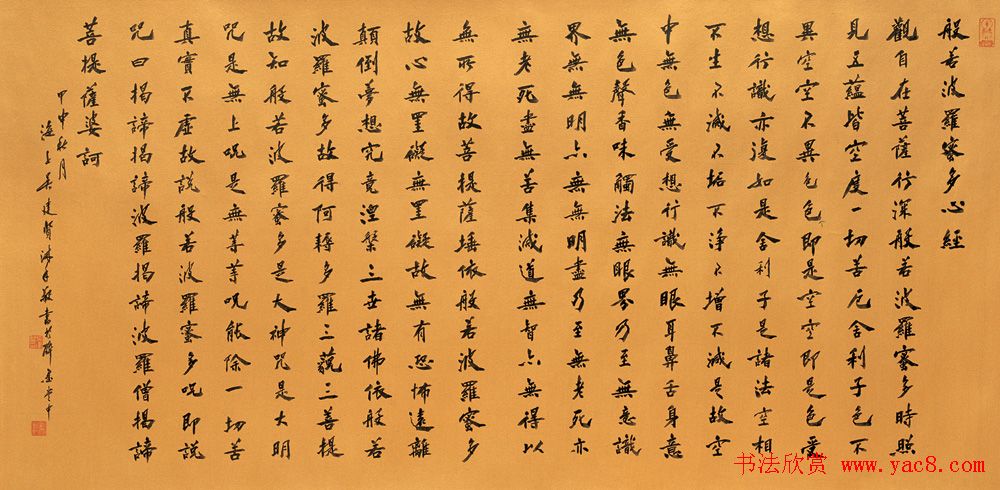 般若波羅蜜多心經
觀自在菩薩行深般若波羅蜜多時照
見五蘊皆空度一切苦厄舍利子色不
異空空不異色色即是空空即是色受
想行識亦復如是舍利子是諸法空相
不生不滅不垢不淨不增不減是故空
中無色無受想行識無眼耳鼻舌身意
無色聲香味觸法無眼界乃至無意識
界無無明亦無無明盡乃至無老死亦
無老死盡無苦集滅道無智亦無得以
無所得故菩提薩埵依般若波羅蜜多
故心無罣礙無罣礙故無有恐怖遠離
顛倒夢想究竟涅槃三世諸佛依般若
波羅蜜多故得阿耨多羅三藐三菩提
故知般若波羅蜜多是大神咒是大明
咒是無上咒是無等等咒能除一切苦
真實不虛故說般若波羅蜜多咒即說
咒曰揭諦揭諦波羅揭諦波羅僧揭諦
菩提薩婆訶
甲申秋月
海上吳建賢沐手敬書於
书法欣赏 www.yac8.com